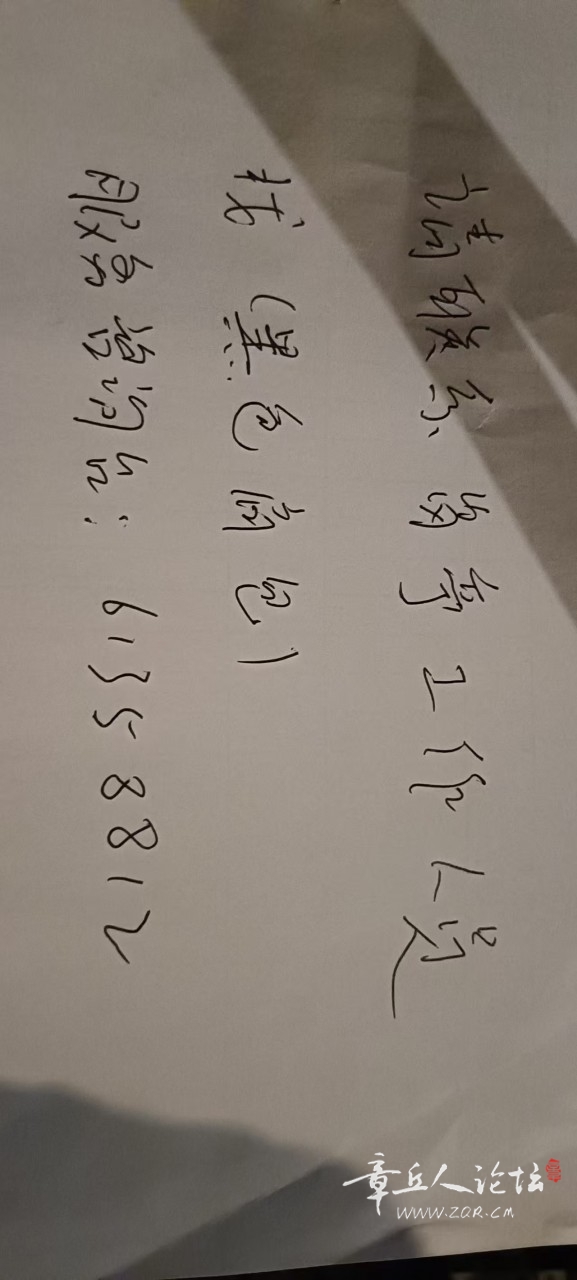 请联系岗亭工作人员
找（黑色肩包）
服务咨询台：61358812
章丘人论坛
WWW.ZQR.CM